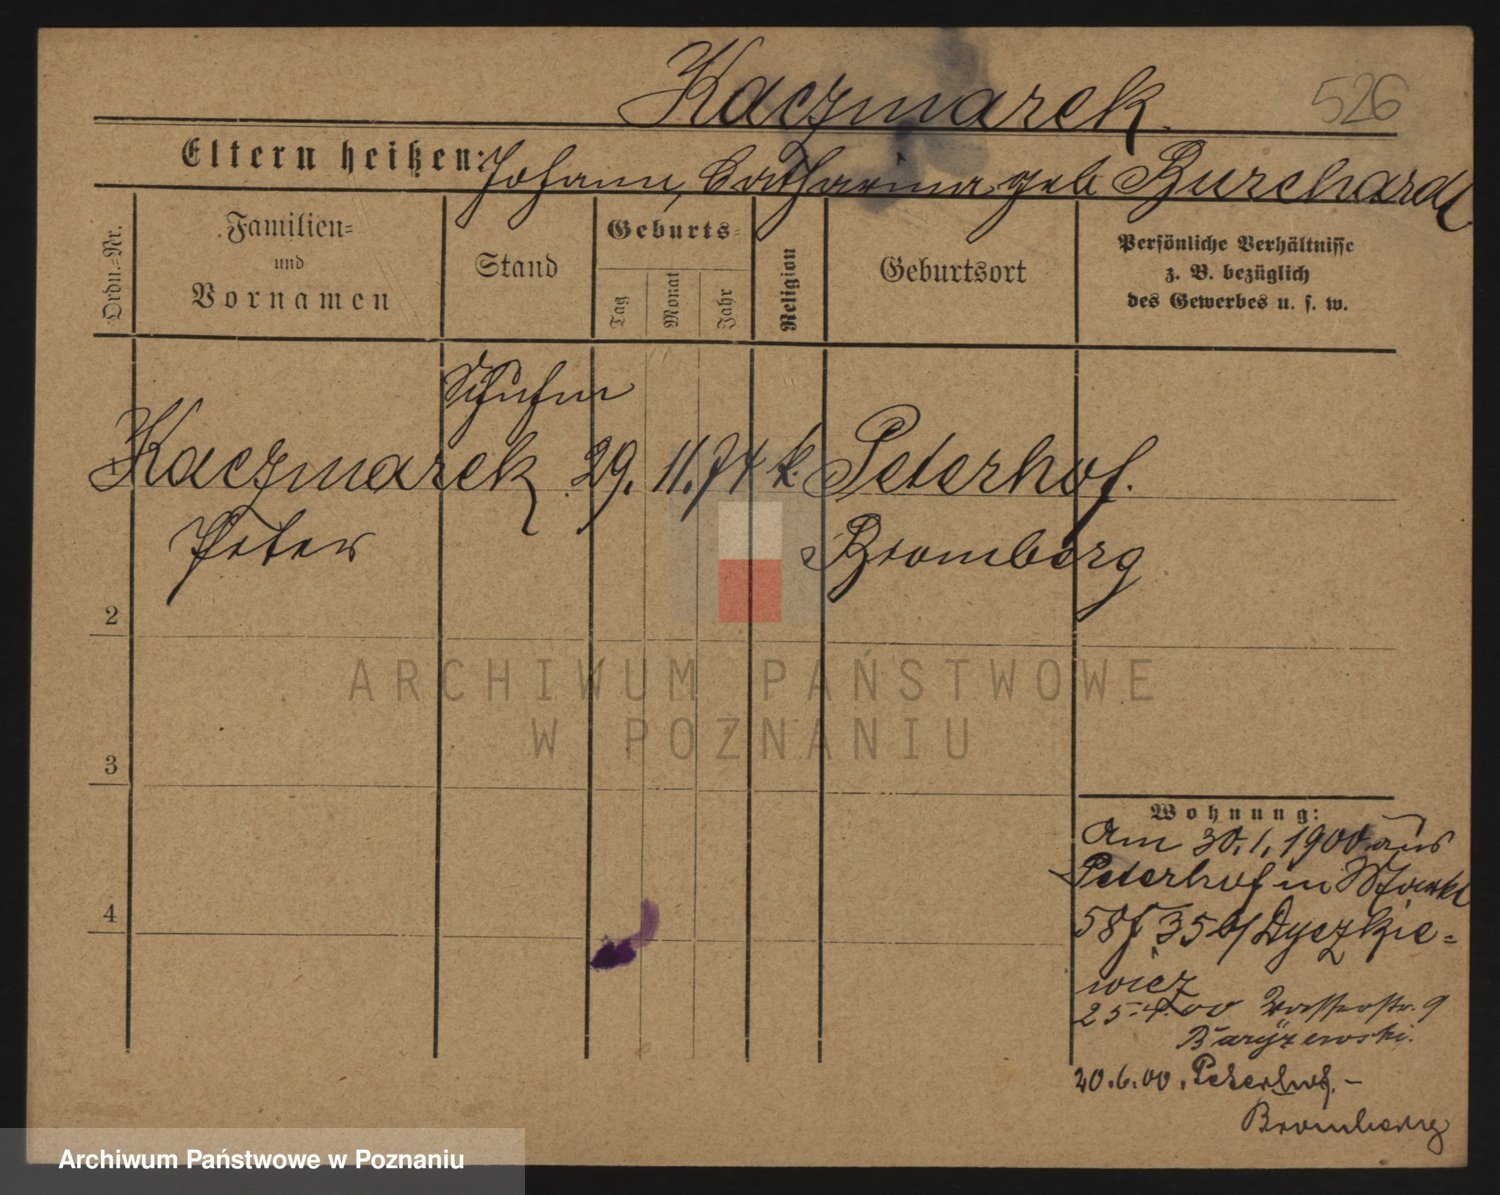 Kaczmarek.
526
Eltern heißen: Johann, Catharina geb Burchardt
Ordn.=Nr.
Familien=
und
Vornamen
Stand
Geburts=
Tag
Monat
Jahr
Religion
Geburtsort
Persönliche Verhältnisse
z. B. bezüglich
des Gewerbes u. s. w.
1
Kaczmarek 29. 11. 74 k. Peterhof.
Peter
Bromberg
2
3
4
Wohnung:
Am 30.1.1900 aus
Peterhof in
58 35 b/ Dyczkie=
wicz
25.4.00 Wasserstr. 9
Baryzewski.
20.6.00. Peterhof. –
Bromberg
ARCHIWUM PAŃSTWOWE
W POZNANIU
Archiwum Państwowe w Poznaniu